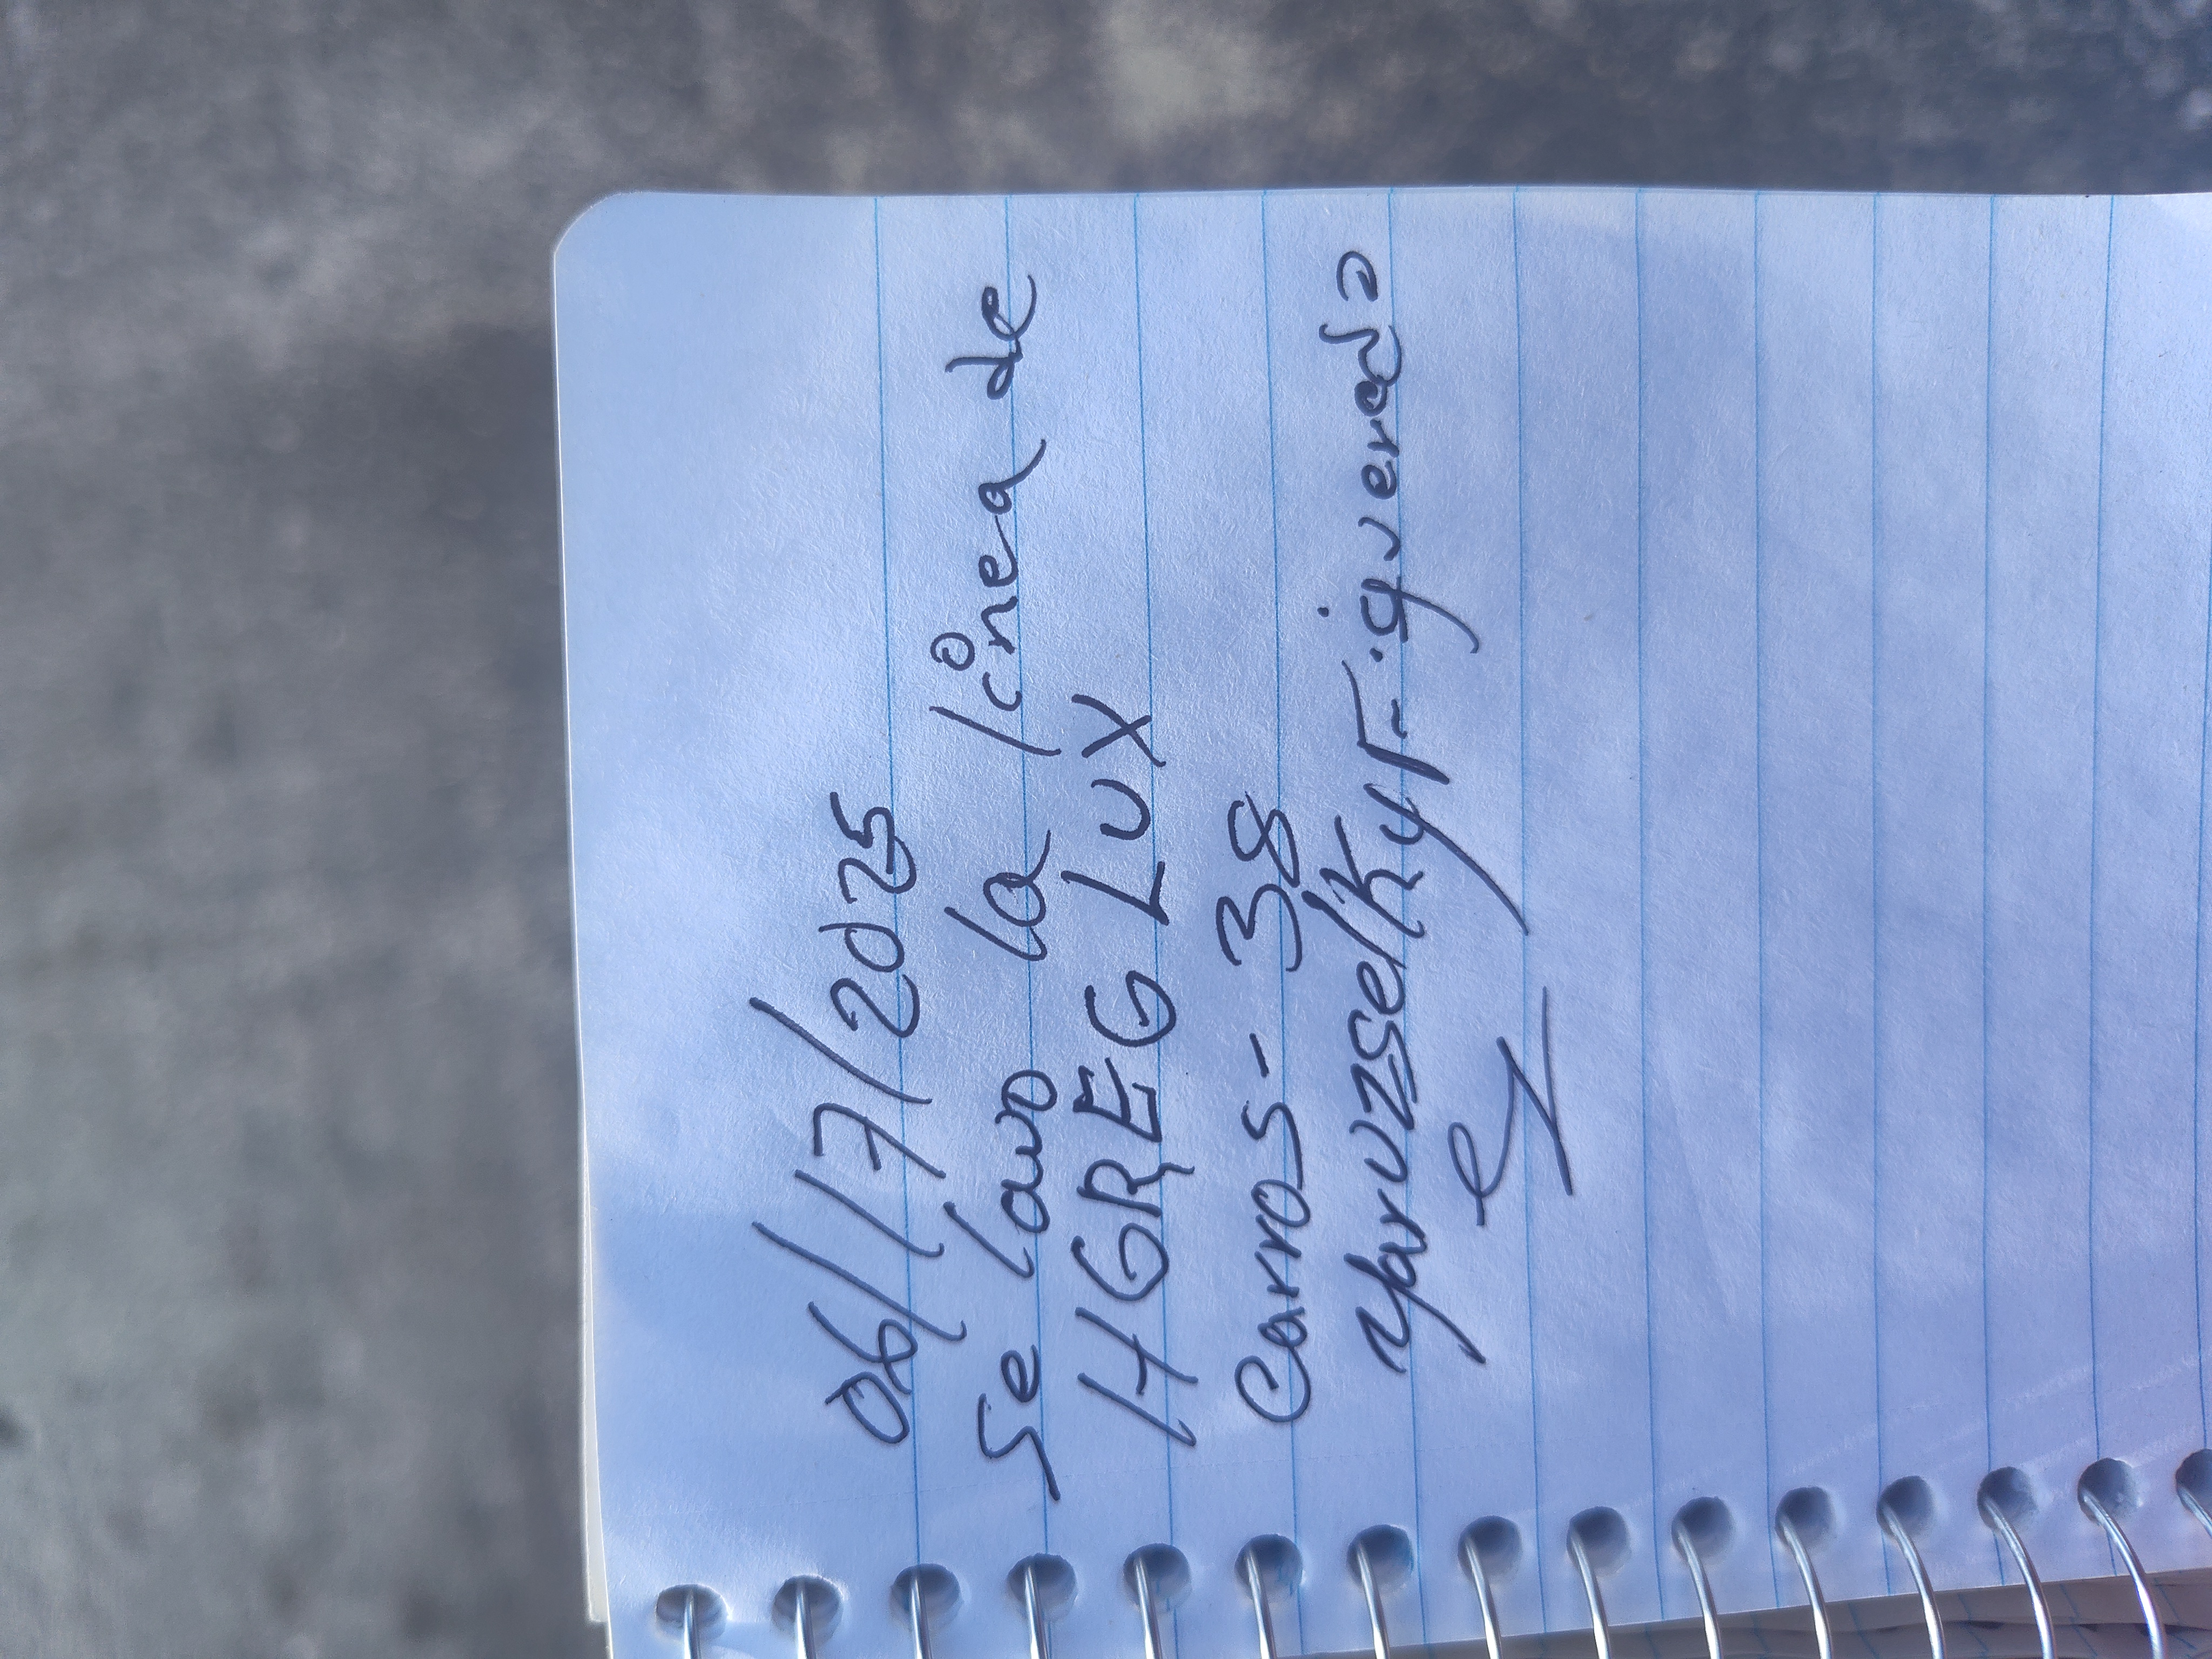 06/17/2025
Se lavo la línea de
HGREG LUX
Carros - 38